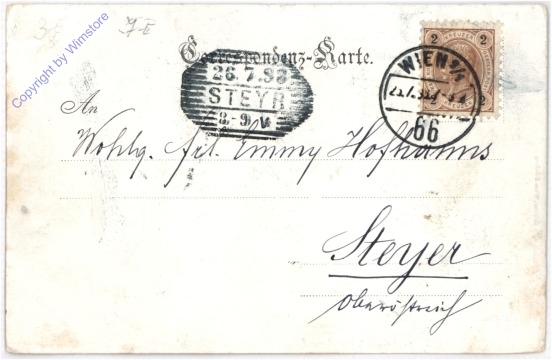 Copyright by Wimstore
Correspondenz-Karte.
2 KREUZER 2
26.7.98
STEYR
8-9.V
WIEN 9/2
66
An
Wohlg. Frl. Emmy Hofhanns
Steyer
Oberöstreich